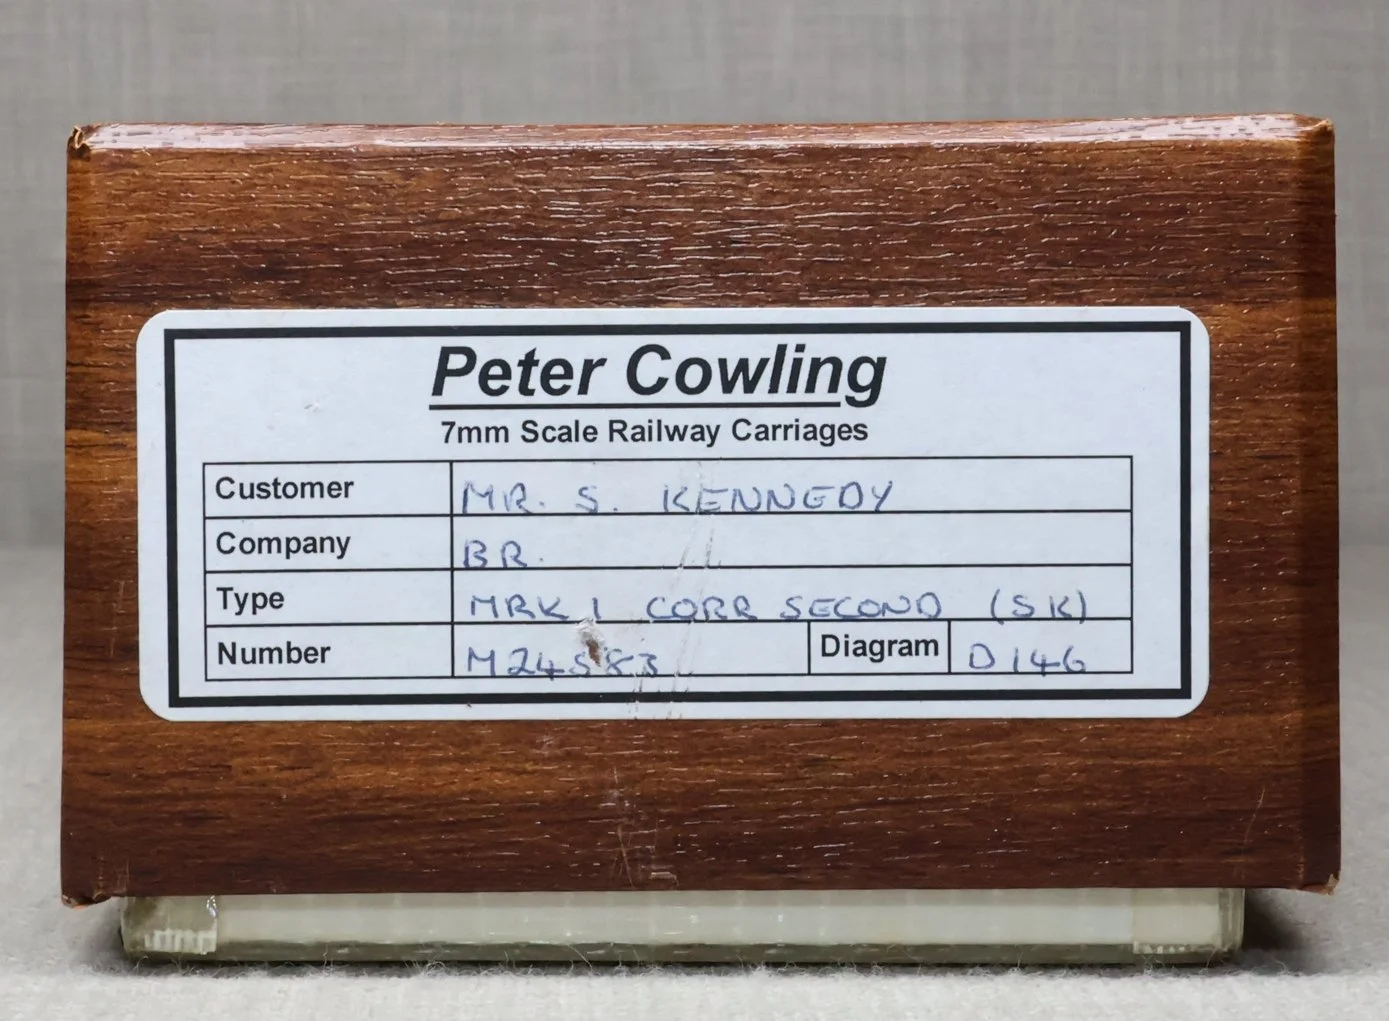 Peter Cowling
7mm Scale Railway Carriages
Customer MR. S. KENNEDY
Company BR.
Type MRK 1 CORR SECOND (SK)
Number M24583 Diagram D146